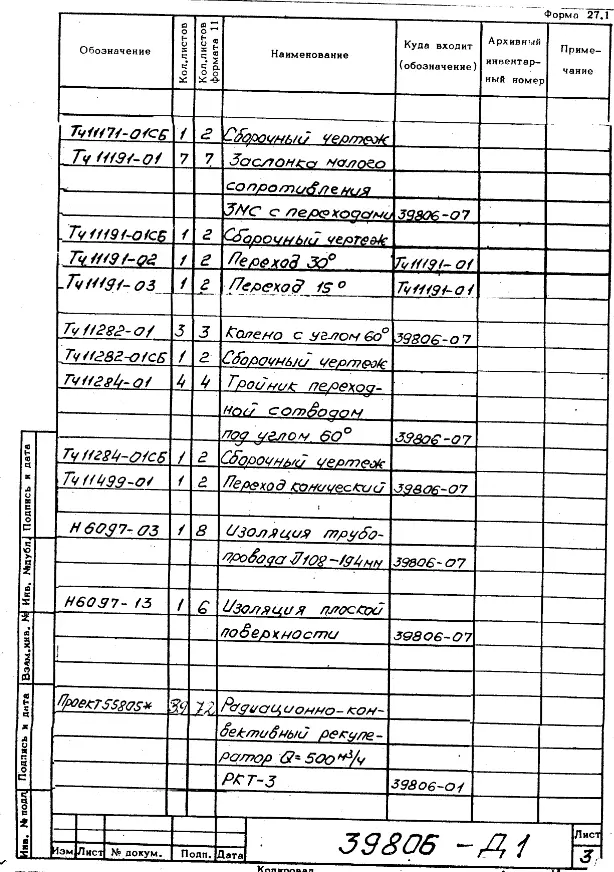 Форма 27.1
Обозначение Кол.листов Кол.листов формата 11 Наименование Куда входит (обозначение) Архивный инвентарный номер Примечание
Тч11171-01СБ 1 2 Сборочный чертеж
Тч11191-01 7 7 Заслонка малого
сопротивления
ЗМС с переходами 39806-07
Тч11191-01СБ 1 2 Сборочный чертеж
Тч11191-02 1 2 Переход 30° Тч11191-01
Тч11191-03 1 2 Переход 15° Тч11191-01
Тч11282-01 3 3 Колено с углом 60° 39806-07
Тч11282-01СБ 1 2 Сборочный чертеж
Тч11284-01 4 4 Тройник переход-
ной с отводом
под углом 60° 39806-07
Тч11284-01СБ 1 2 Сборочный чертеж
Тч11499-01 1 2 Переход конический 39806-07
Н6097-03 1 8 Изоляция трубо-
провода Д108-194мм 39806-07
Н6097-13 1 6 Изоляция плоской
поверхности 39806-07
Проект55805* 39 72 Радиационно-кон-
вективный рекупе-
ратор Q=500м³/ч
РКТ-3 39806-01
Инв. № подл. Подпись и дата Взам.инв. № Инв. №дубл. Подпись и дата
Изм Лист № докум. Подп. Дата
39806-Д1
Лист
3
Копировал